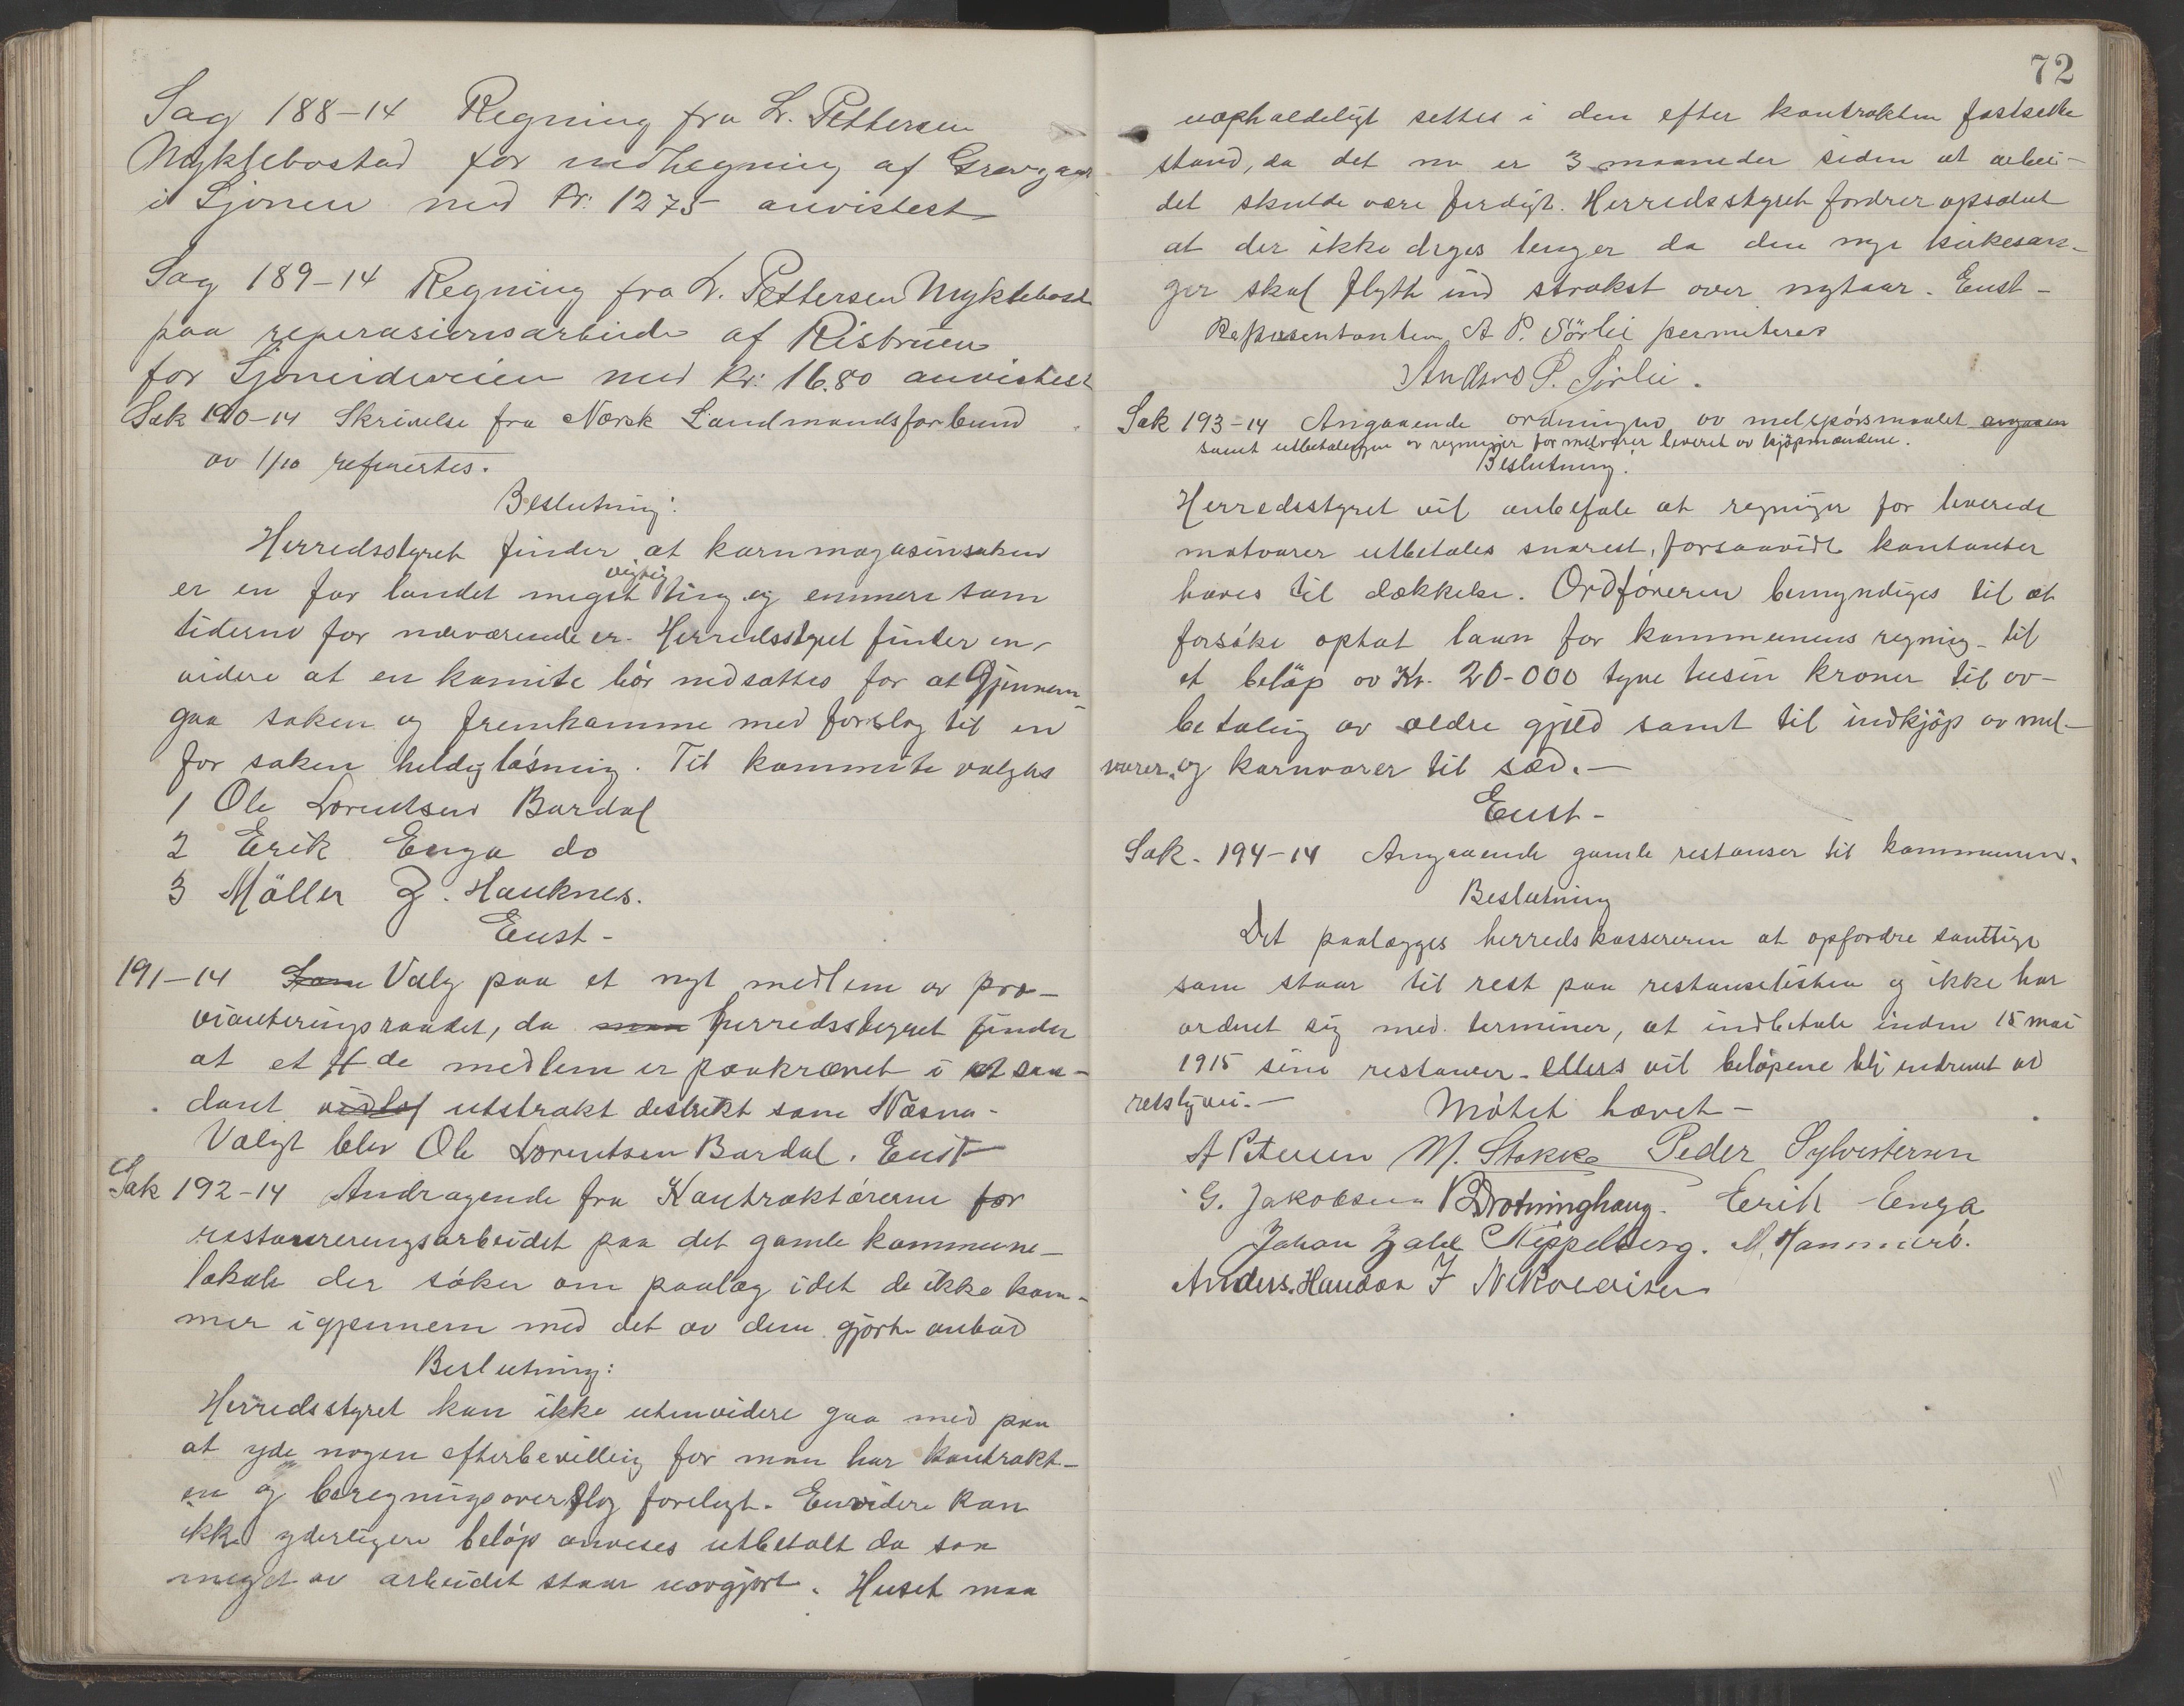 Sag 188-14 Regning fra L. Pettersen
Myklebostad for indhegning af Gravgaar
i Sjonen med Kr: 1275 anvistest
Sag 189-14 Regning fra L. Pettersen Myklebost
paa reperasionsarbeide af Risbruen
for Sjoneidveien med Kr: 16.80 anvistest
Sak 190-14 Skrivelse fra Norsk Landmandsforbund
av 1/10 refertes.
Beslutning:
Herredsstyret finder at kornmagasinsaken
er en for landet meget vigtig ting og emmere som
tiderne for nærværende er. Herredsstyret finder en-
videre at en komite bör nedsættes for at Gjennem-
gaa saken og fremkomme med forslag til en
for saken heldig lösning. Til kommite valgtes
1 Ole Lorentsen Bardal
2 Erik Enga do
3 Möller Z. Hauknes.
Enst-
191-14 Som Valg paa et nyt medlem av pro-
vianteringsraadet, da man herredsstyret finder
at et 4de medlem er paakrævet i et saa-
dant vidlöf utstrakt destrikt som Næsna-
Valgt blev Ole Lorentsen Bardal. Enst
Sak 192-14 Andragende fra Kontraktörerne for
restaureringsarbeidet paa det gamle kommune-
lokale der söker om paalæg idet de ikke kom-
mer igjennem med det av dem gjorte anbud
Beslutning:
Herredsstyret kan ikke utenvidere gaa med paa
at yde nogen efterbevilling for man har kontrakt-
en og beregningsoverslag forelegt. Envidere kan
ikke yderligere belöp anvises utbetalt da saa
meget av arbeidet staar uavgjort. Huset maa
72
uopholdeligt settes i den efter kontrakten fastsette
stand, da det nu er 3 maaneder siden at arbei-
det skulde være ferdigt. Herredsstyret fordrer apsolut
at der ikke dryges lenger da den nye kirkesan-
ger skal flytte ind strakst over nytaar. Enst-
Representanten A P. Sörlie permiteres
Anders P. Sörlie.
Sak 193-14 Angaaende ordningen av melspörsmaalet angaaen
samt utbetalingen av regninger for melvarer leveret av kjöpmændene.
Beslutning:
Herredsstyret vil anbefale at regninger for leverede
matvarer utbetales snarest, forsaavidt kontanter
haves til dækkelse. Ordföreren bemyndiges til at
forsöke optat laan for kommunens regning til
et belöp av Kr. 20-000 tyve tusin kroner til av-
betaling av ældre gjeld samt til indkjöp av mel-
varer og kornvarer til sæd.-
Enst-
Sak. 194-14 Angaaende gamle restanser til kommunen.
Beslutning
Det paalægges herredskassereren at opfordre samtlige
som staar til rest paa restanselisten og ikke har
ordnet sig med terminer, at indbetale inden 15 mai
1915 sine restanser. ellers vil belöpene bli indrevet ad
retslig vei.-
Mötet hævet-
A Petersen M. Stokke Peder Sylvestersen
G. Jakobsen B Drotninghaug. Erik Enga
Johan Zahl C Keppelberg. M. Hammerö.
Anders. Hanson F Nikolaisen